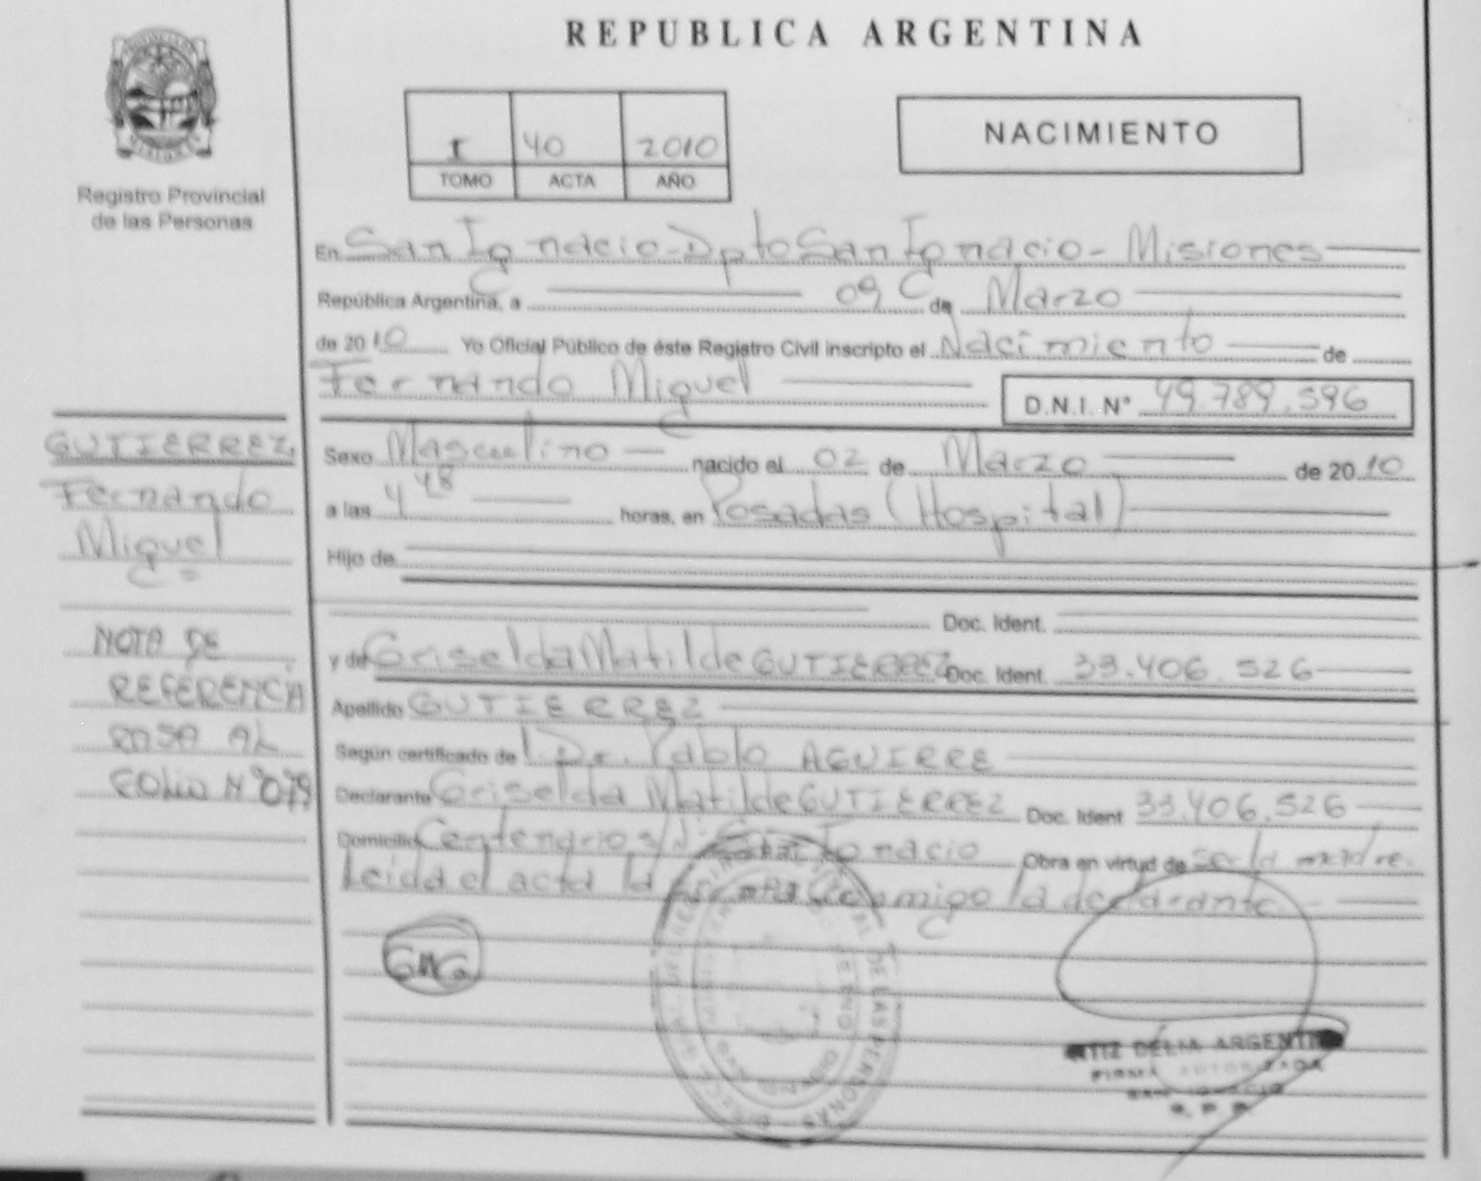 REPUBLICA ARGENTINA
PROVINCIA DE
MISIONES
Registro Provincial
de las Personas
I 40 2010
TOMO ACTA AÑO
NACIMIENTO
En San Ignacio - Dpto San Ignacio - Misiones
República Argentina, a 09 de Marzo
de 2010 Yo Oficial Público de éste Registro Civil inscripto el Nacimiento de
Fernando Miguel
D.N.I. N° 49.789.596
GUTIERREZ
Fernando
Miguel
Sexo Masculino nacido el 02 de Marzo de 2010
a las 4 48 horas, en Posadas (Hospital)
Hijo de
Doc. Ident.
y de Griselda Matilde GUTIERREZ Doc. Ident. 33.406.526
Apellido GUTIERREZ
Según certificado de Dr. Pablo AGUIRRE
Declarante Griselda Matilde GUTIERREZ Doc. Ident 33.406.526
Domicilio Centenario s/N: San Ignacio Obra en virtud de ser la madre.
Leida el acta la firma conmigo la declarante
NOTA DE
REFERENCIA
PASA AL
FOLIO N° 079
GMG
DE LAS PERSONAS
DELIA ARGENTINA
FIRMA AUTORIZADA
SAN IGNACIO
R. P. P.